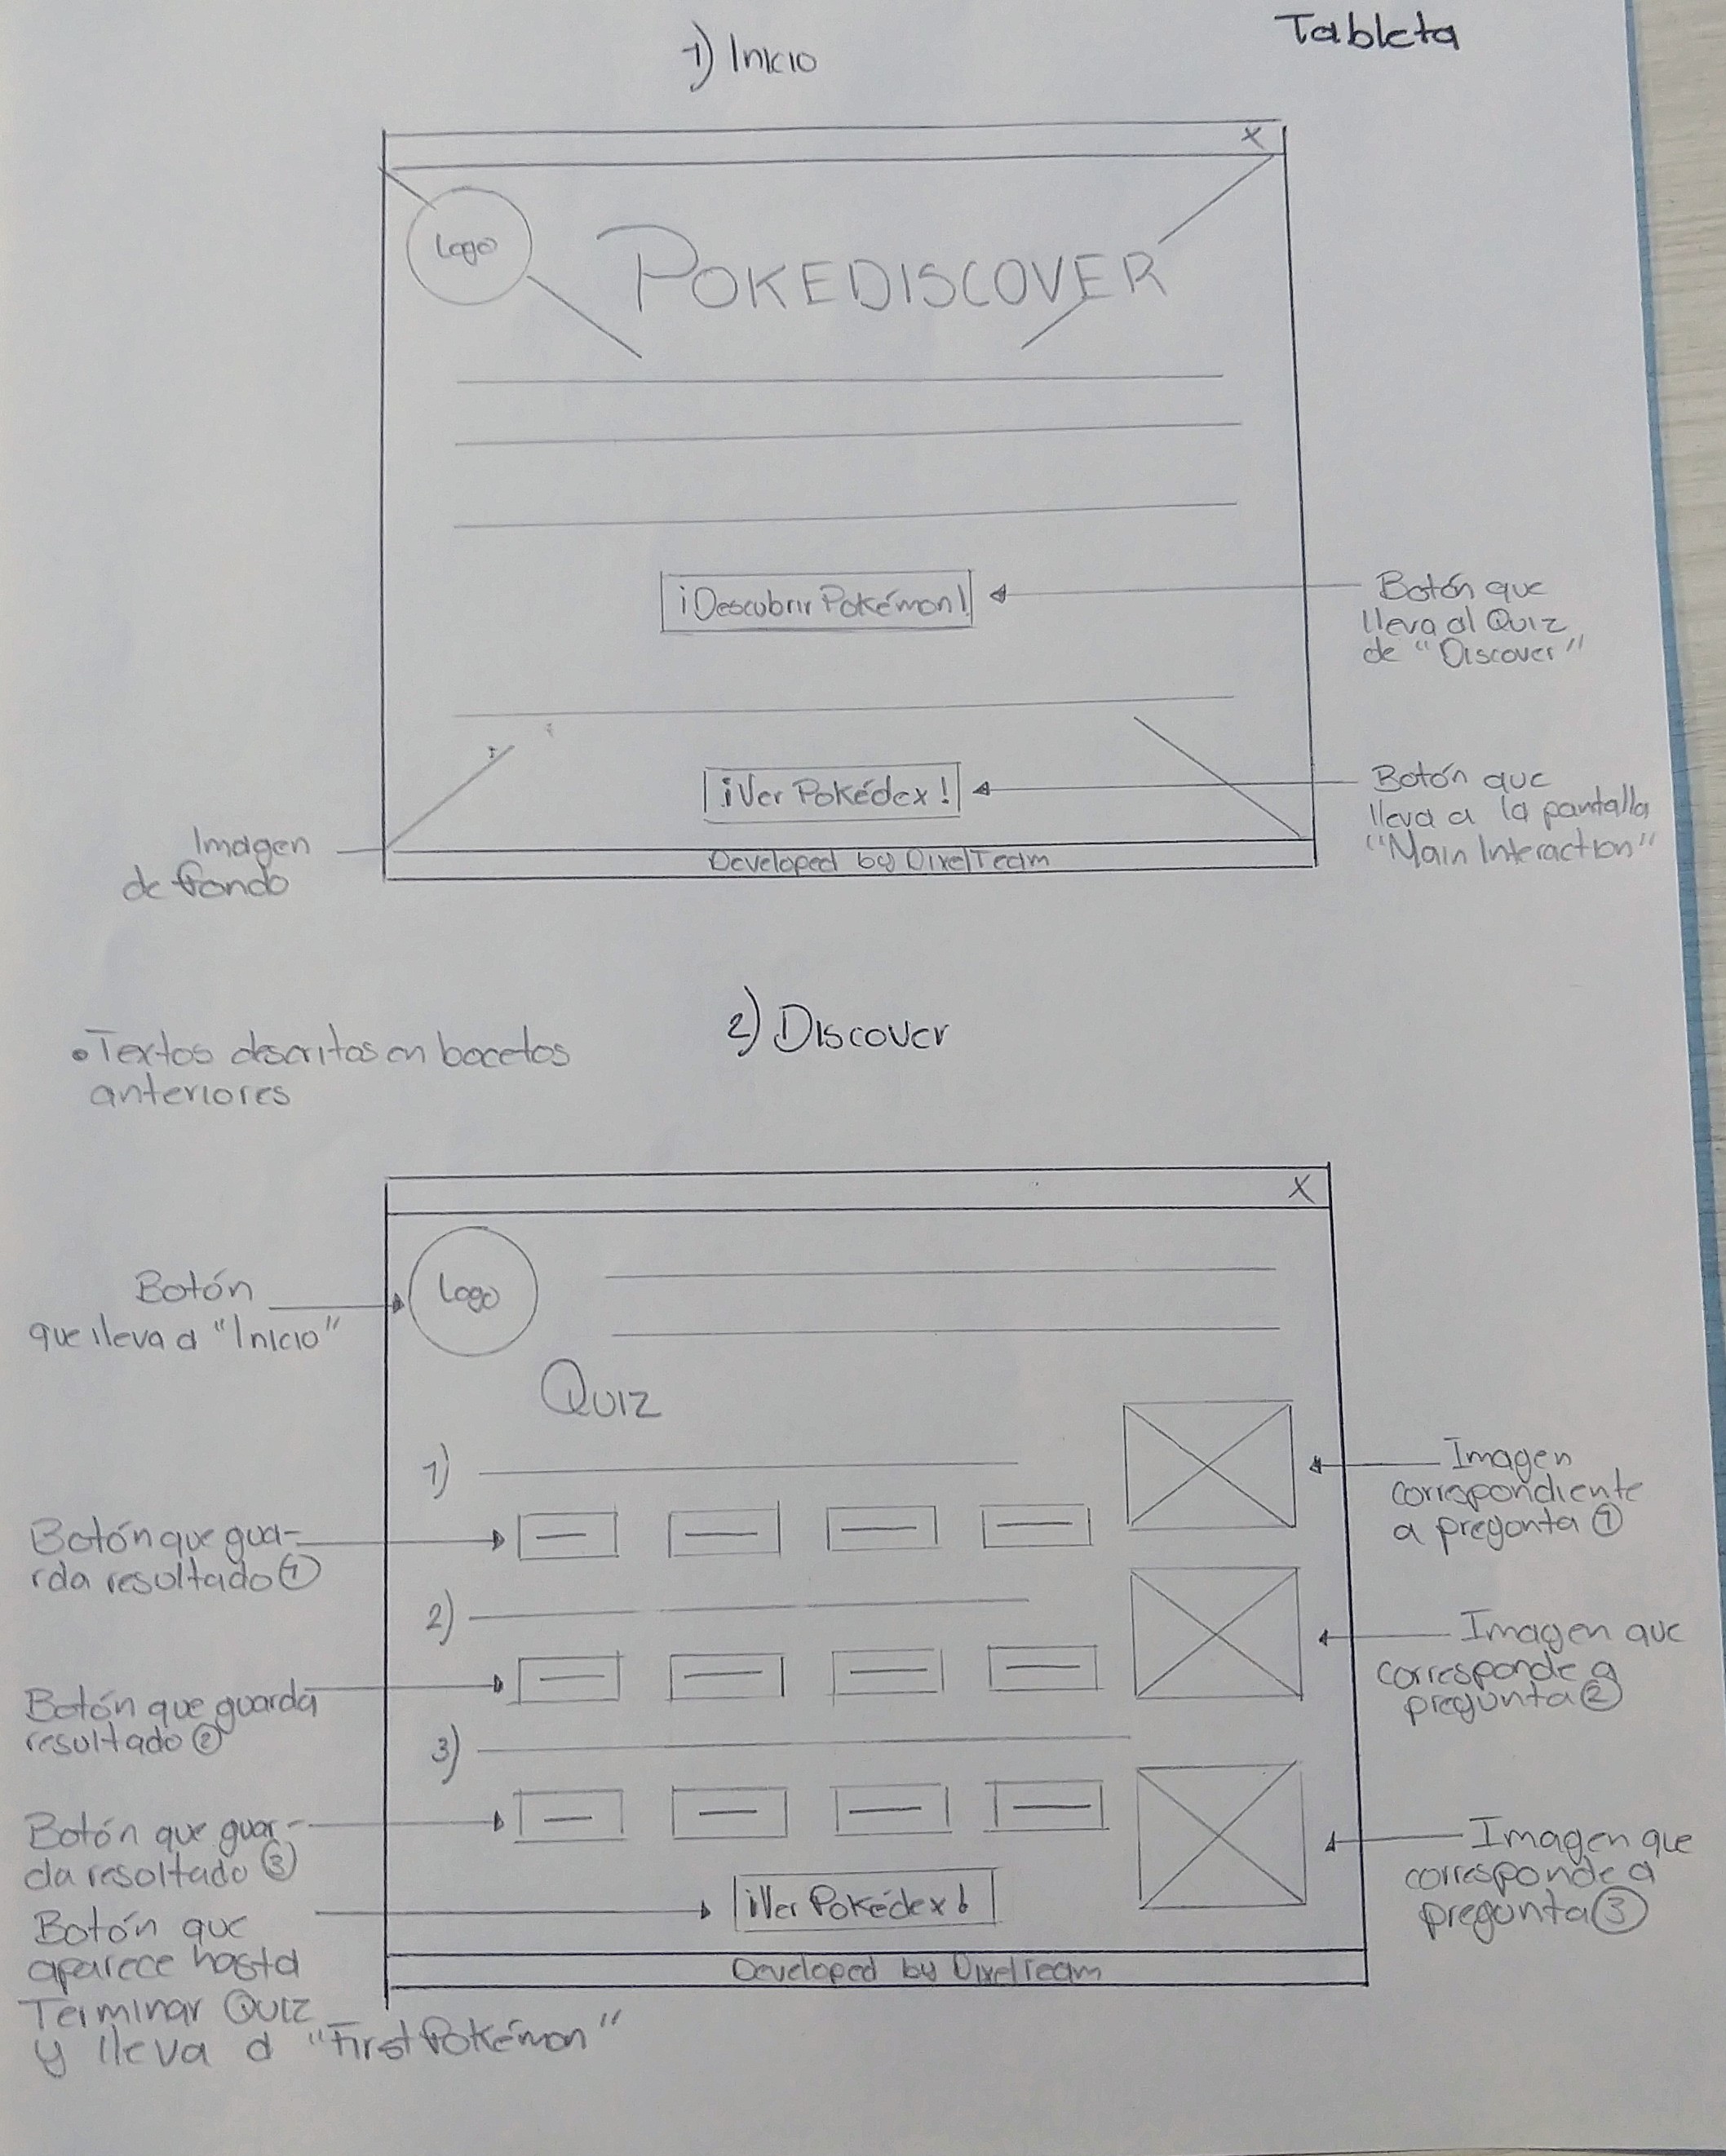 Tableta
1) Inicio
X
Logo
POKEDISCOVER
¡Descubrir Pokémon!
Botón que
lleva al Quiz
de "Discover"
¡Ver Pokédex!
Botón que
lleva a la pantalla
"Main Interaction"
Imagen
de fondo
Developed by DixelTeam
2) Discover
• Textos descritos en bocetos
anteriores
X
Logo
Botón
que lleva a "Inicio"
Quiz
1)
Imagen
correspondiente
a pregunta 1
Botón que gua-
rda resultado 1
2)
Imagen que
corresponde a
pregunta 2
Botón que guarda
resultado 2
3)
Botón que guar-
da resultado 3
Imagen que
corresponde a
pregunta 3
¡Ver Pokédex!
Botón que
aparece hasta
Terminar Quiz
y lleva a "First Pokémon"
Developed by DixelTeam